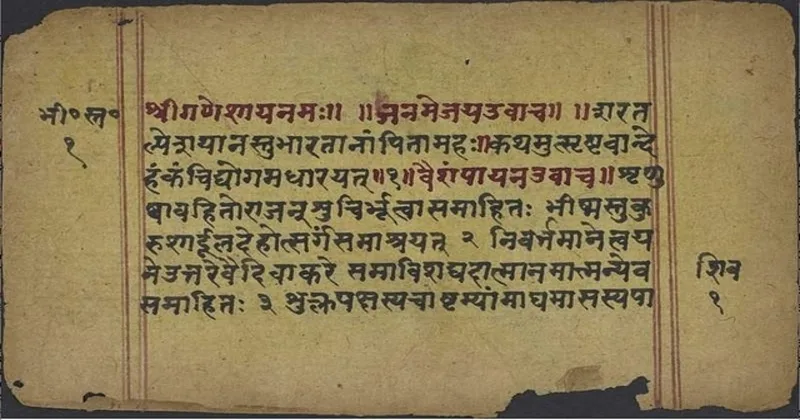 श्रीगणेशायनमः॥ ॥जनमेजयउवाच॥ ॥शरत
भी॰स्त॰
१
ल्पेशयानस्तुभारतानांपितामहः॥कथमुत्सृष्टवान्दे
हंकंचिद्योगमधारयत्॥१॥वैशंपायनउवाच॥शृणु
ष्वावहितोराजन्शुचिर्भूत्वासमाहितः भीष्मस्तुकु
रुशार्दूलदेहोत्सर्गंसमाश्रयत् २ निवर्त्तमानेत्वय
मेउत्तरेवैदिवाकरे समाविशद्यहात्मानमात्मन्येव
शिव
१
समाहितः ३ शुक्लपक्षस्यचाष्टम्यांमाघमासस्यपा